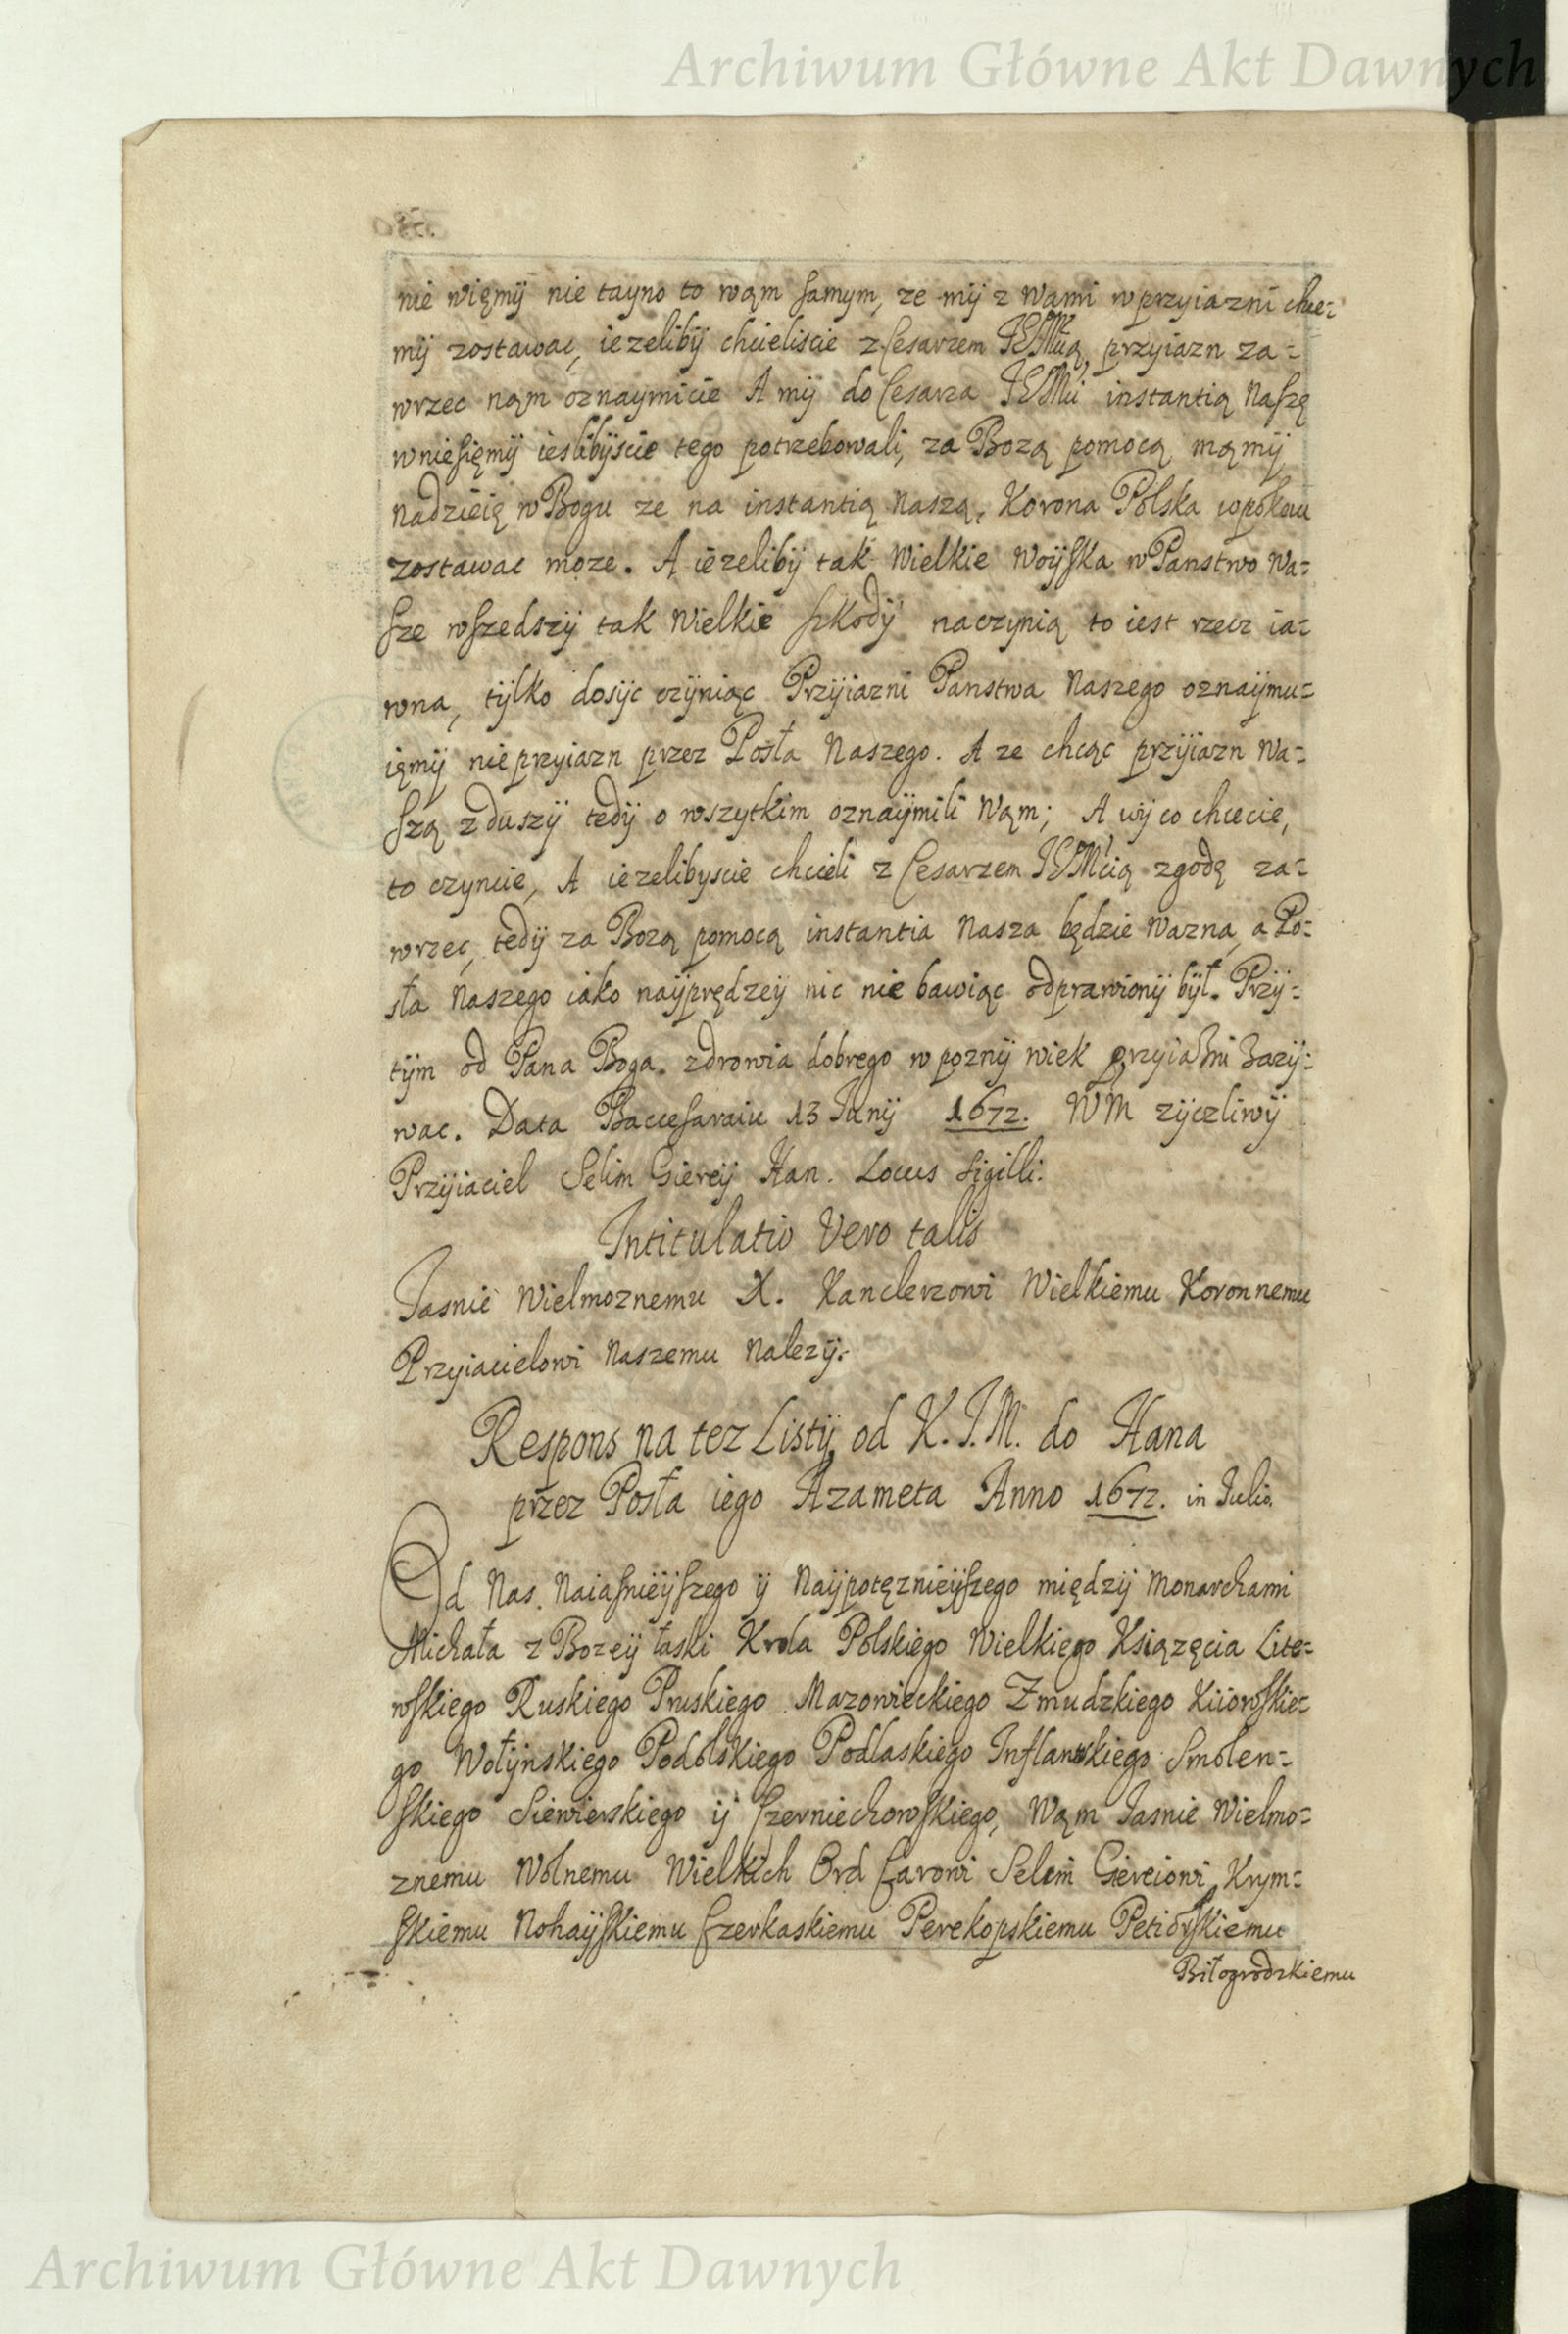 Archiwum Główne Akt Dawnych
nie więmÿ nie tayno to wąm samym, ze mÿ z wami w przyiazni chce-
mÿ zostawac, iezelibÿ chcieliscie z Cesarzem przyiazn za-
wrzec nąm oznaymicie A mÿ do Cesarza instantią Naszę
wniesięmÿ ieslibÿscie tego potrzebowali, za Bozą pomocą mąmÿ
nadzieię w Bogu ze na instantią naszą, Korona Polska w pokoiu
zostawac moze. A iezelibÿ tak Wielkie Woÿska w Panstwo Wa-
sze wszedszÿ tak Wielkie szkodÿ naczynią to iest rzecz ia-
wna, tÿlko dosÿc czÿniąc Przÿiazni Panstwa Naszego oznaÿmu-
ięmÿ nieprzyiazn przez Posła Naszego. A ze chcąc przÿiazn Wa-
szą z duszÿ tedÿ o wszytkim oznaÿmili Wąm; A wÿ co chcecie,
to czyncie, A iezelibyscie chcieli z Cesarzem JEMcią zgodę za-
wrzec, tedÿ za Bozą pomocą instantia Nasza będzie Wazna, a Po-
sła Naszego iako naÿprędzeÿ nic nie bawiąc odprawionÿ bÿł. Przÿ-
tÿm od Pana Boga. zdrowia dobrego w poznÿ wiek przyiazni zazÿ-
wac. Data Baccesaraiu 13 Junÿ 1672. WM zÿczliwÿ
Przÿiaciel Selim Giereÿ Han. Locus Sigilli.
Intitulatio Vero talis
Jasnie Wielmoznemu X. Kanclerzowi Wielkiemu Koronnemu
Przyiacielowi Naszemu Nalezÿ.
Respons na tez Listÿ od K.J.M. do Hana
przez Posła iego Azameta Anno 1672. in Julio.
Od Nas Naiasnieÿszego ÿ Naÿpotęznieÿszego międzÿ Monarchami
Michała z Bozeÿ łaski Krola Polskiego Wielkiego Xsiązęcia Lite-
wskiego Ruskiego Pruskiego Mazowieckiego Zmudzkiego Kiiowskie-
go Wołÿnskiego Podolskiego Podlaskiego Inflantskiego Smolen-
skiego Siewierskiego ÿ Czerniechowskiego, Wąm Jasnie Wielmo-
znemu Wolnemu Wielkich Ord Carowi Selim Giereiowi Krym-
skiemu Nohaÿskiemu Czerkaskiemu Perekopskiemu Petiorskiemu
Biłogrodzkiemu
Archiwum Główne Akt Dawnych